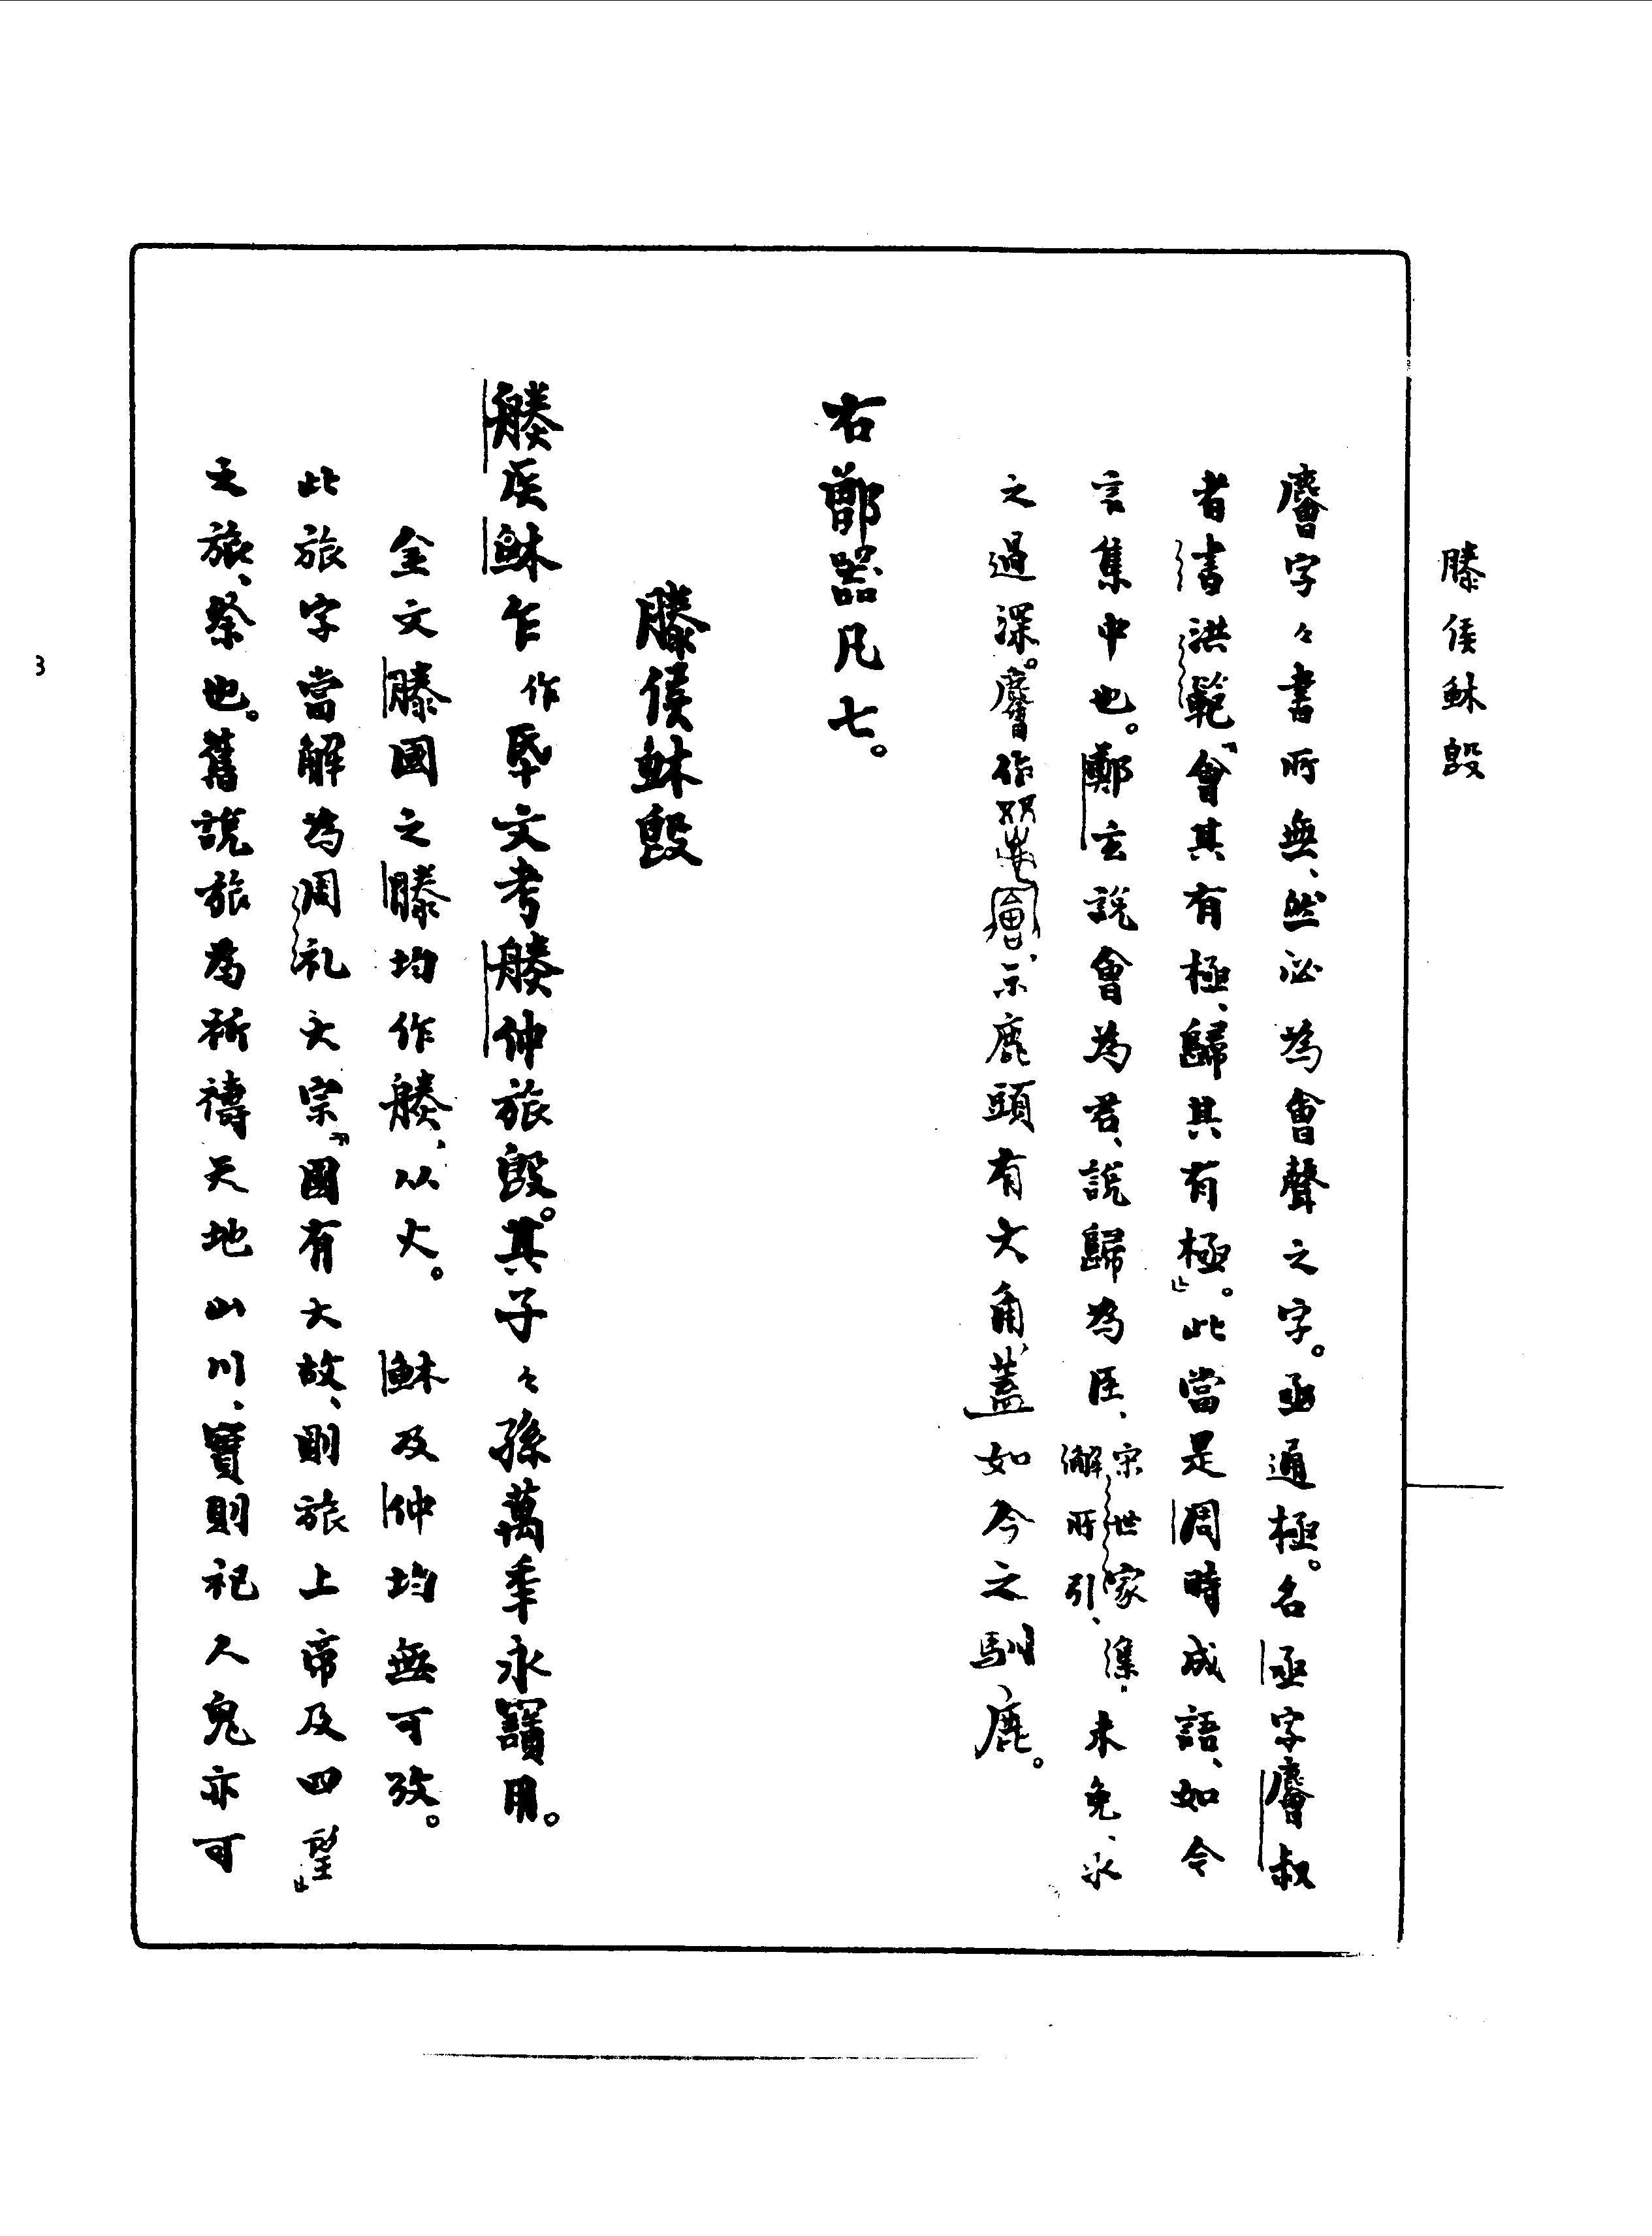 滕侯穌𣪘
字〻書所無、然必為會聲之字。亟通極。名亟字叔
者書洪範「會其有極、歸其有極」。此當是周時成語、如今
言集中也。鄭玄說會為君、說歸為臣、宋世家集解所引、未免求
之過深。作、示鹿頭有大角、蓋如今之馴鹿。
右鄫器凡七。
滕侯穌𣪘
𦩎矦穌乍作氒文考𦩎仲旅𣪘。其子〻孫萬年永寶用。
金文滕國之滕均作𦩎、从火。穌及仲均無可攷。
此旅字當解為周礼大宗「國有大故、則旅上帝及四望」
之旅、祭也。舊說旅為祈禱天地山川、實則祀人鬼亦可